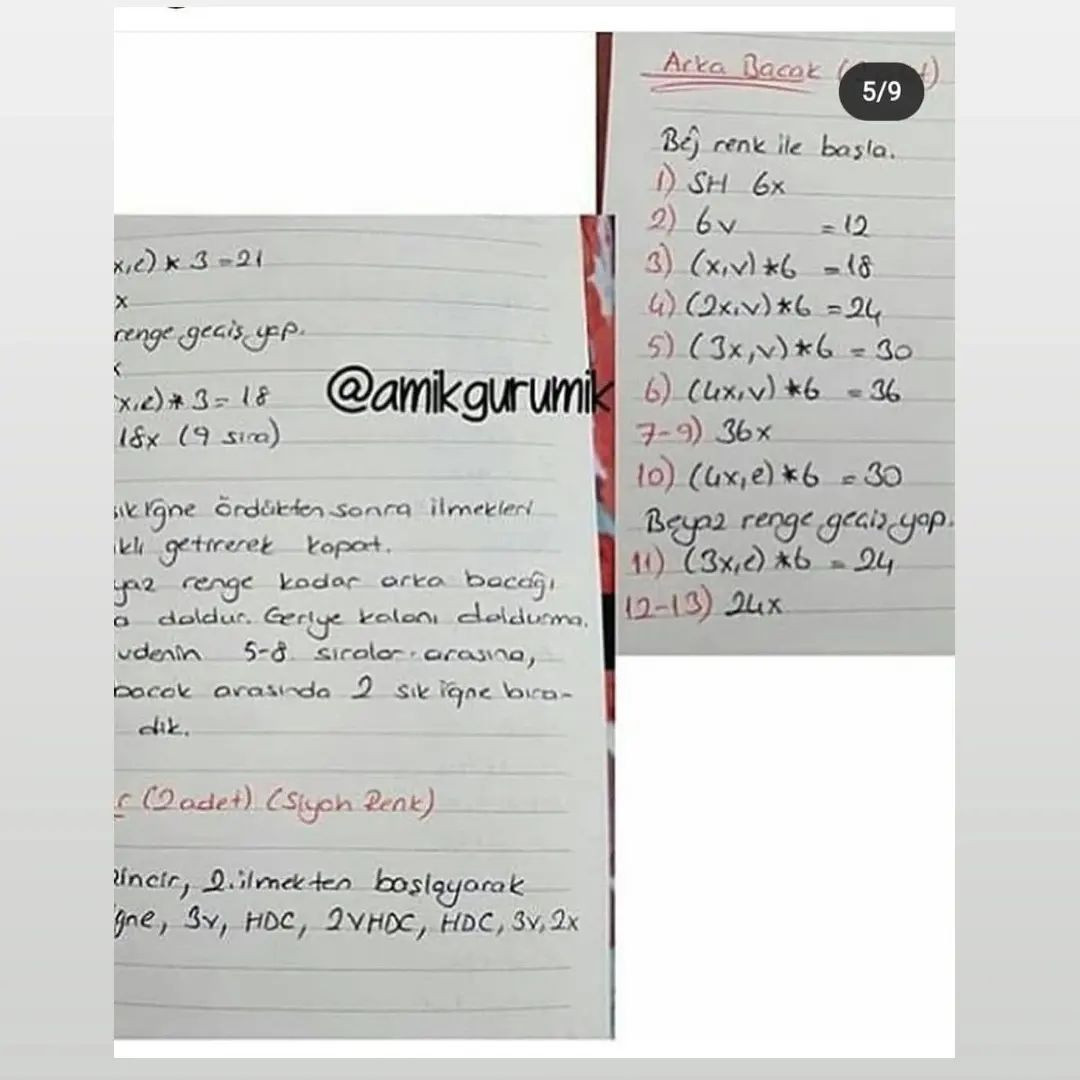 Arka Bacak (
5/9
Bej renk ile başla.
1) SH 6x
2) 6v =12
3) (x,v)*6 =18
4) (2x,v)*6 =24
5) (3x,v)*6 = 30
6) (4x,v)*6 = 36
7-9) 36x
10) (4x,e)*6 = 30
Beyaz renge geçiş yap.
11) (3x,e)*6 = 24
12-13) 24x
x,e)*3=21
x
renge geçiş yap.
x,e)*3=18
18x (9 sıra)
@amikgurumik
sık iğne ördükten sonra ilmekleri
getirerek kapat.
yaz renge kadar arka bacağı
a doldur. Geriye kalanı doldurma.
vdenin 5-8 sıralar arasına,
bacak arasında 2 sık iğne bıra-
dık.
(2 adet) (Siyah Renk)
zincir, 2. ilmekten başlayarak
ğne, 3v, HDC, 2VHDC, HDC, 3v, 2x